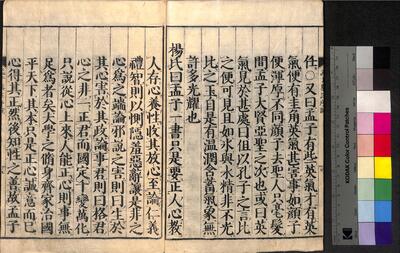 仕○又曰孟子有些英氣才有英
氣便有圭角英氣甚害事如顏子
便渾厚不同顏子去聖人只毫髮
間孟子大賢亞聖之次也或曰英
氣見於甚處曰但以孔子之言比
之便可見且如氷與水精非不光
比之玉自是有溫潤含蓄氣象無
許多光耀也
楊氏曰孟子一書只是要正人心教
人存心養性收其放心至論仁義
禮智則以惻隱羞惡辭讓是非之
心爲之端論邪說之害則曰生於
其心害於其政論事君則曰格君
心之非一正君而國定千變萬化
只說從心上來人能正心則事無
足爲者矣大學之脩身齊家治國
平天下其本只是正心誠意而已
心得其正然後知性之善故孟子
KODAK Color Control Patches